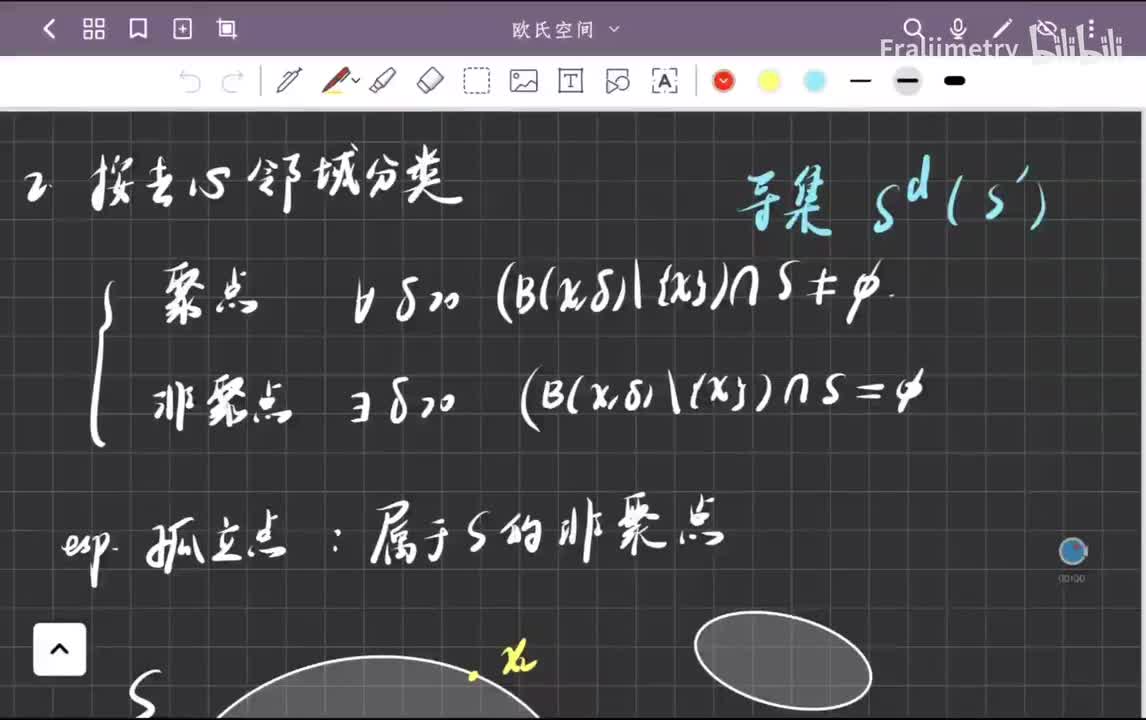 欧氏空间
Fraliimetry bilibili
2. 按去心邻域分类
导集 S^d (S')
聚点 ∀ δ>0 (B(x,δ)\{x})∩S≠φ.
非聚点 ∃ δ>0 (B(x,δ)\{x})∩S=φ
esp. 孤立点：属于S的非聚点
00:00
S